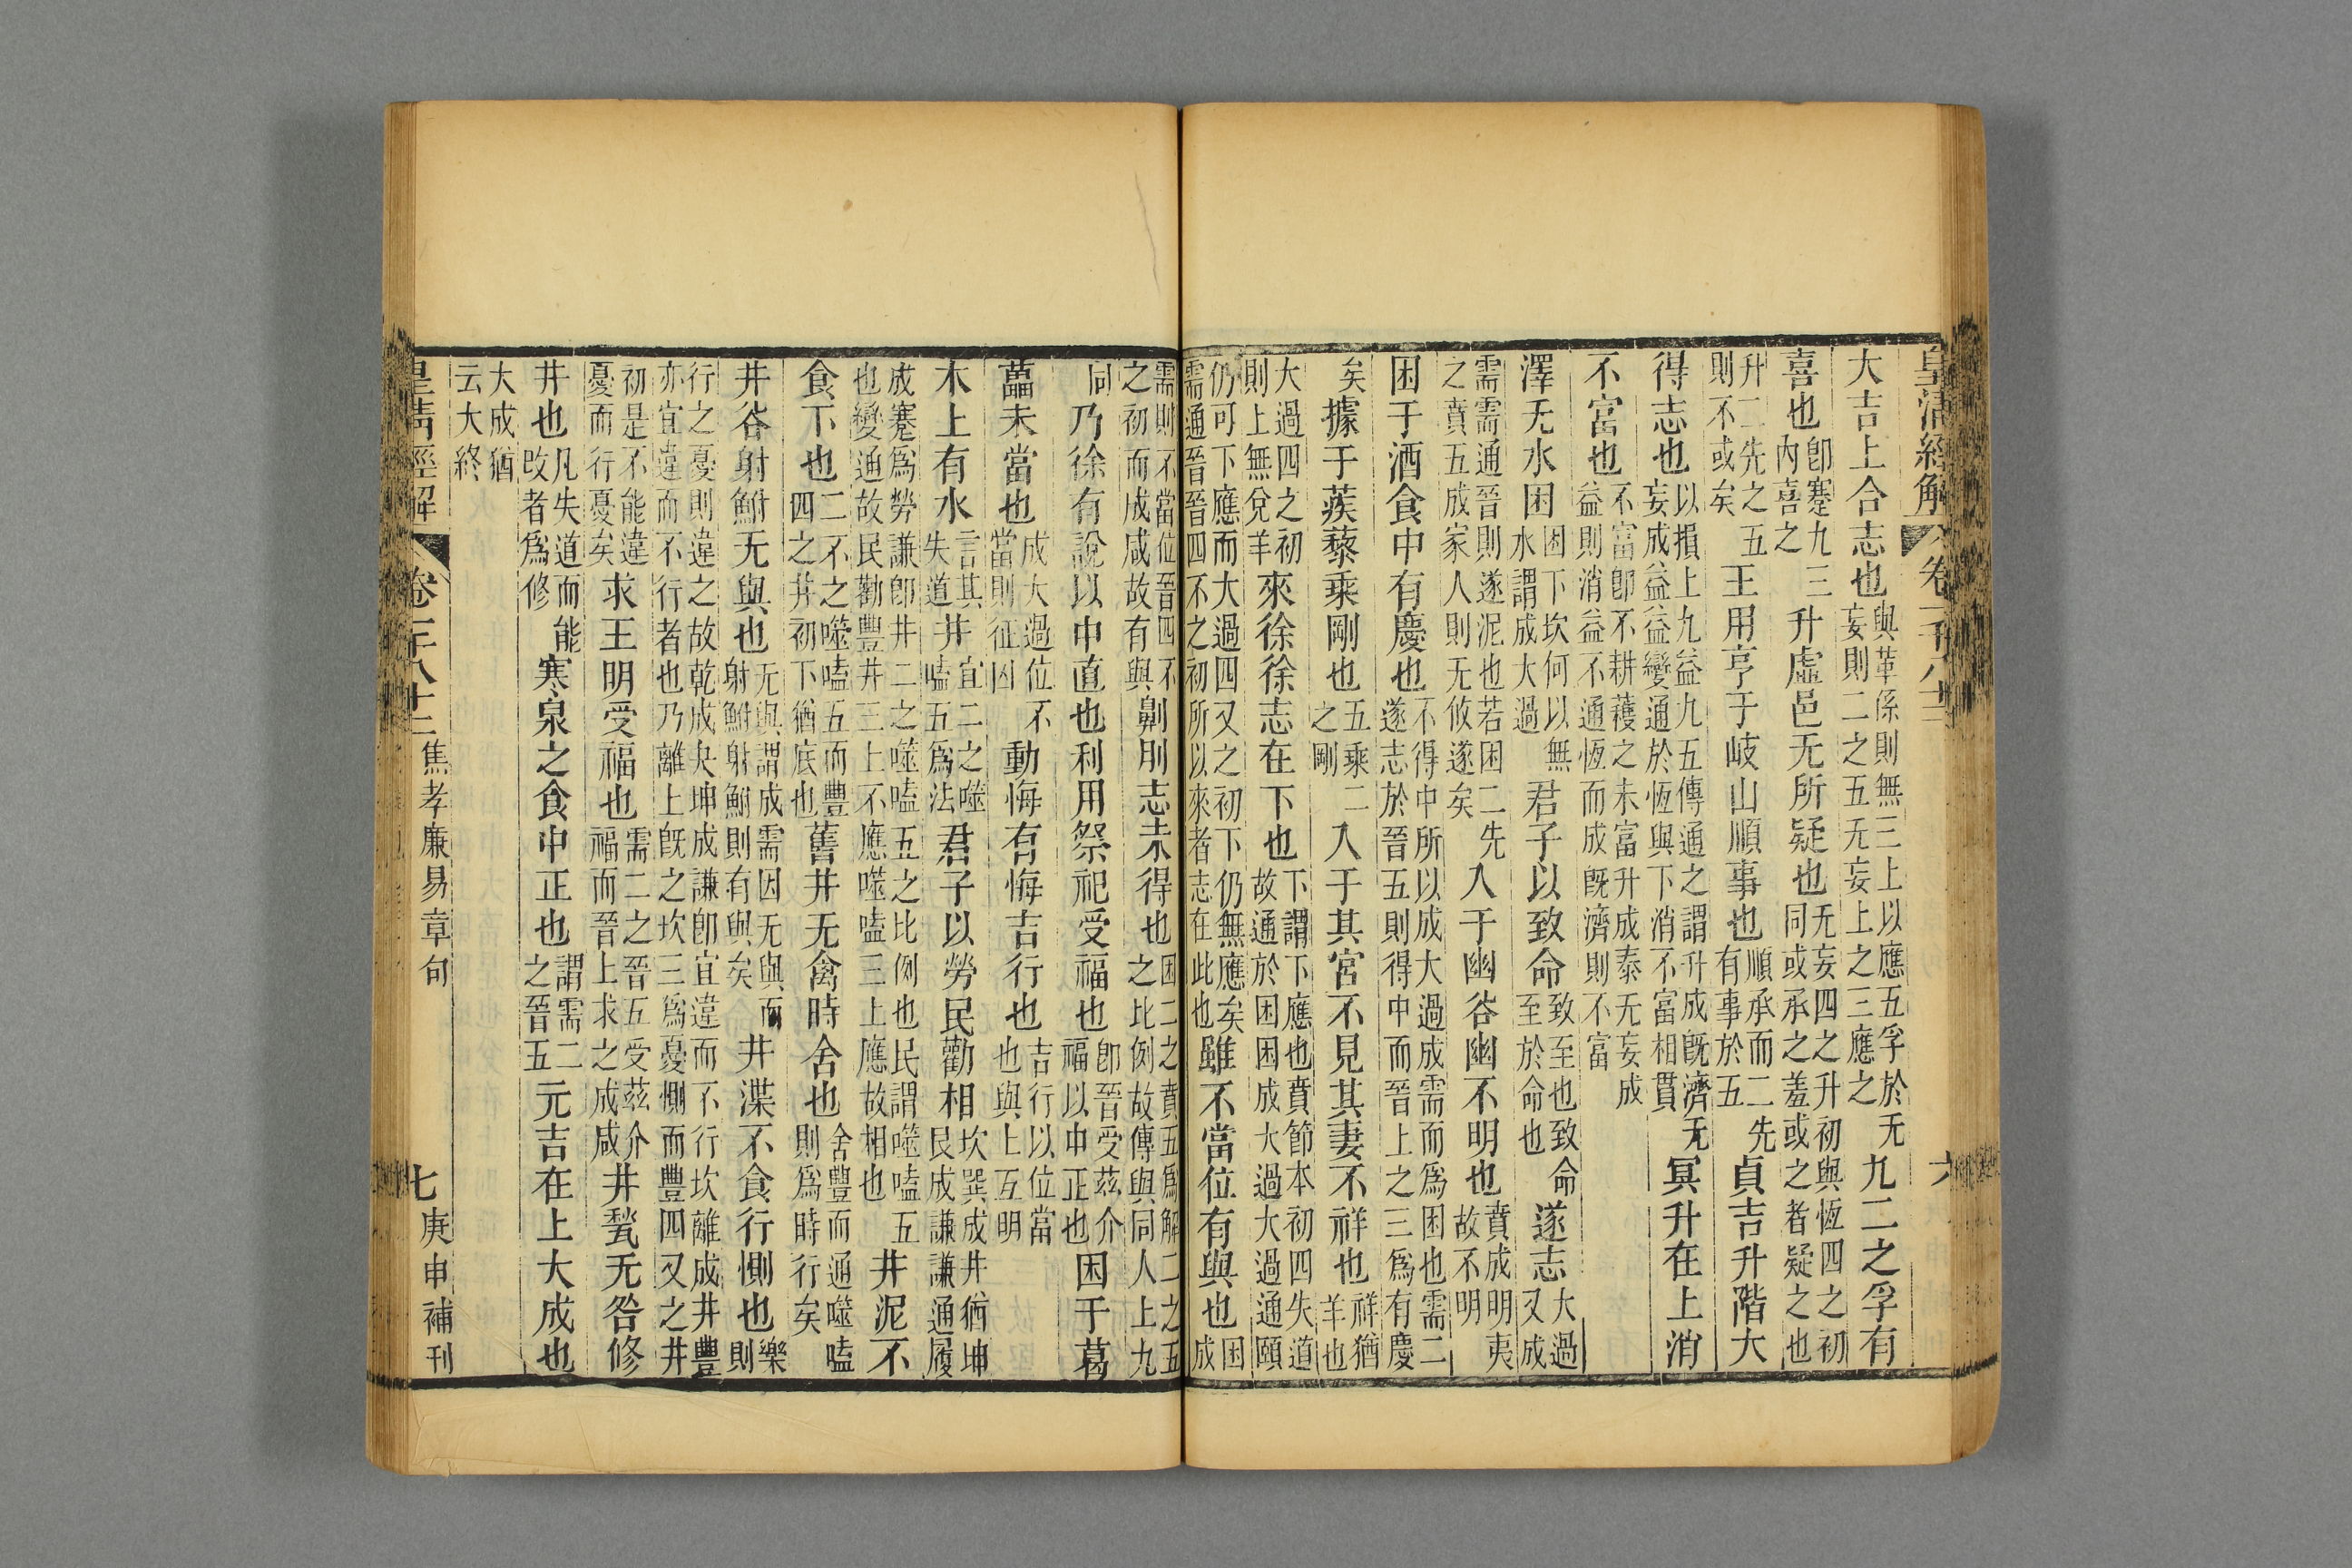 皇清經解 卷一千八十二 六
大吉上合志也與革係則無三上以應五孚於无妄則二之五无妄上之三應之九二之孚有
喜也卽蹇九三內喜之升虛邑无所疑也无妄四之升初與恆四之初同或承之羞或之者疑之也
升二先之五則不或矣王用亨于岐山順事也順承而二先有事於五貞吉升階大
得志也以損上九益九五傳通之謂升成旣濟无妄成益益變通於恆與下消不富相貫冥升在上消
不富也不富卽不耕穫之未富升成泰无妄成益則消益不通恆而成旣濟則不富
澤无水困困下坎何以無水謂成大過君子以致命致至也致命至於命也遂志大過又成
需需通晉則遂泥也若困二先之賁五成家人則无攸遂矣入于幽谷幽不明也賁成明夷故不明
困于酒食中有慶也不得中所以成大過成需而爲困也需二遂志於晉五則得中而晉上之三爲有慶
矣據于蒺藜乘剛也五乘二之剛入于其宮不見其妻不祥也祥猶羊也
大過四之初則上無兌羊來徐徐志在下也下謂下應也賁節本初四失道故通於困困成大過大過通頤
仍可下應而大過四又之初下仍無應矣需通晉晉四不之初所以來者志在此也雖不當位有與也困成
需則不當位晉四不之初而成咸故有與劓刖志未得也困二之賁五爲解二之五之比例故傳與同人上九
同乃徐有說以中直也利用祭祀受福也卽晉受茲介福以中正也困于葛
藟未當也成大過位不當則征凶動悔有悔吉行也吉行以位當也與上互明
木上有水言其失道井井宜二之噬嗑五爲法君子以勞民勸相坎巽成井猶坤艮成謙謙通履
成蹇爲勞謙卽井二之噬嗑五之比例也民謂噬嗑五也變通故民勸豐井三上不應噬嗑三上應故相也井泥不
食下也二不之噬嗑五而豐四之井初下猶底也舊井无禽時舍也舍豐而通噬嗑則爲時行矣
井谷射鮒无與也无與謂成需因无與而射鮒射鮒則有與矣井渫不食行惻也樂則
行之憂則違之故乾成夬坤成謙卽宜違而不行坎離成井豐亦宜違而不行者也乃離上旣之坎三爲憂惻而豐四又之井
初是不能違憂而行憂矣求王明受福也需二之晉五受茲介福而晉上求之成咸井甃无咎修
井也凡失道而能改者爲修寒泉之食中正也謂需二之晉五元吉在上大成也
大成猶云大終
皇清經解 卷一千八十二 焦孝廉易章句 七 庚申補刊